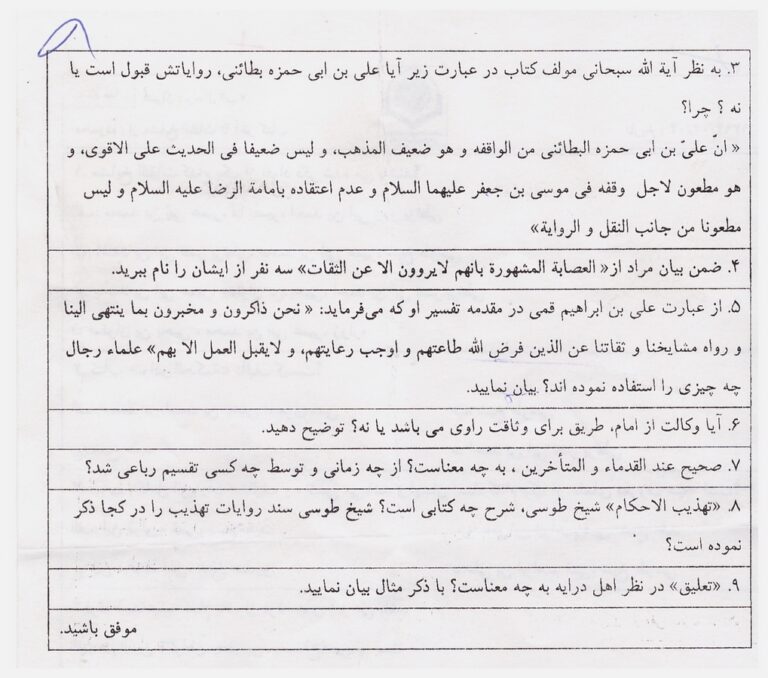 ۳. به نظر آیة الله سبحانی مولف کتاب در عبارت زیر آیا علی بن ابی حمزه بطائنی، روایاتش قبول است یا
نه ؟ چرا؟
« ان علیّ بن ابی حمزه البطائنی من الواقفه و هو ضعیف المذهب، و لیس ضعیفا فی الحدیث علی الاقوی، و
هو مطعون لاجل وقفه فی موسی بن جعفر علیهما السلام و عدم اعتقاده بامامة الرضا علیه السلام و لیس
مطعونا من جانب النقل و الروایة»
۴. ضمن بیان مراد از« العصابة المشهورة بانهم لایروون الا عن الثقات» سه نفر از ایشان را نام ببرید.
۵. از عبارت علی بن ابراهیم قمی در مقدمه تفسیر او که می‌فرماید: « نحن ذاکرون و مخبرون بما ینتهی الینا
و رواه مشایخنا و ثقاتنا عن الذین فرض الله طاعتهم و اوجب رعایتهم، و لایقبل العمل الا بهم» علماء رجال
چه چیزی را استفاده نموده اند؟ بیان نمایید.
۶. آیا وکالت از امام، طریق برای وثاقت راوی می باشد یا نه؟ توضیح دهید.
۷. صحیح عند القدماء و المتأخرین ، به چه معناست؟ از چه زمانی و توسط چه کسی تقسیم رباعی شد؟
۸. «تهذیب الاحکام» شیخ طوسی، شرح چه کتابی است؟ شیخ طوسی سند روایات تهذیب را در کجا ذکر
نموده است؟
۹. «تعلیق» در نظر اهل درایه به چه معناست؟ با ذکر مثال بیان نمایید.
موفق باشید.